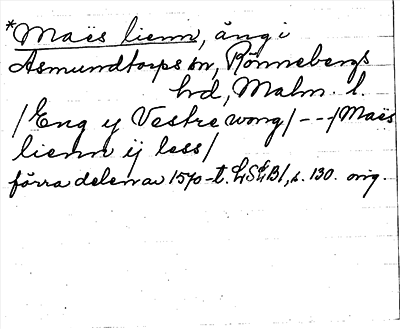 *Maës lienn, äng i
Asmundtorps sn, Rönnebergs
hd, Malm. l.
/Eng y Vestre wong/ - - /Maës
lienn ij less/
förra delen av 1570-t. LSÉB1, s. 130. orig.